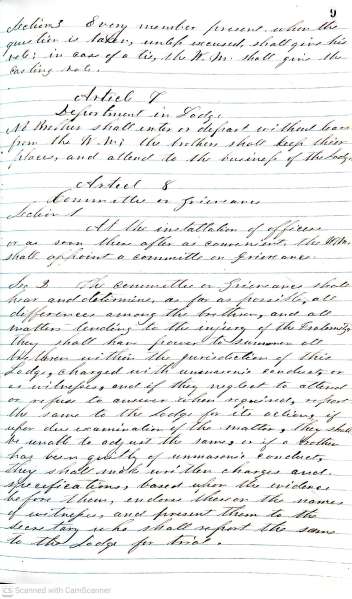 9
Section 3 Every member present when the
question is taken, unless excused, shall give his
vote; in case of a tie, the W. M. shall give the
casting vote.
Article 7
Deportment in Lodge
No Brother shall enter or depart without leave
from the W. M; the brothers shall keep their
places, and attend to the business of the Lodge
Articl 8
Committee on Grievances
Section 1
At the installation of officers
or as soon there after as convenient, the W. M.
shall appoint a committe on Grievance.
Sec 2. The committee on Grievances shall
hear and determine, as far as possible, all
differences among the brethren, and all
matters tending to the injury of the Fraternity
they shall have power to summon all
brethren within the jurisdiction of this
Lodge, charged with unmasonic conduct, or
as witnesses, and if they neglect to attend
or refuse to answer when required, report
the same to the Lodge for its action, if
upon due examination of the matter, they shall
be unable to adjust the same, or if a brother
has been guilty of unmasonic conduct,
they shall make written charges and
specifications, based upon the evidence
before them, endorse thereon the names
of witnesses, and present them to the
Secretary who shall report the same
to the Lodge for trial.
CS Scanned with CamScanner